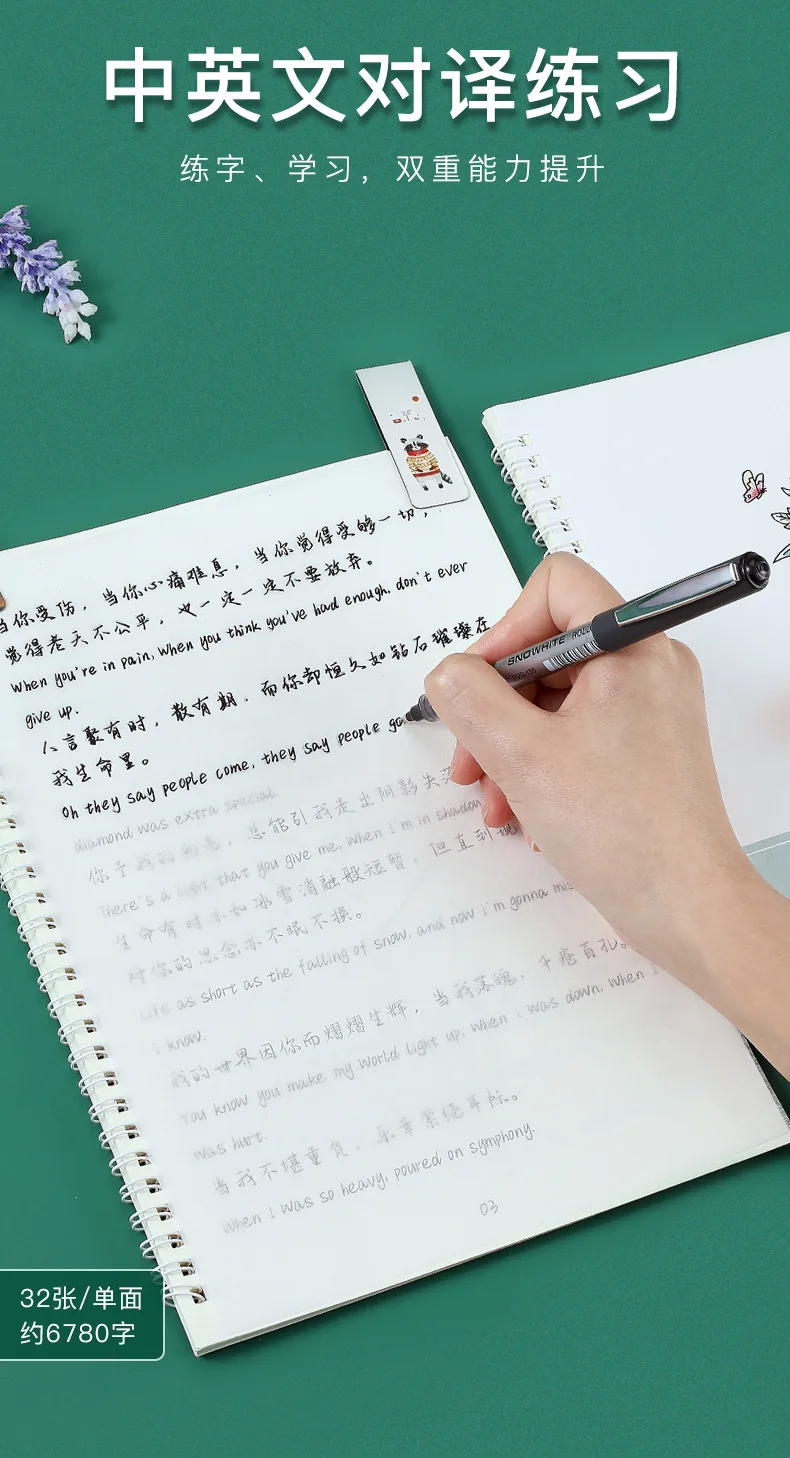 中英文对译练习
练字、学习，双重能力提升
当你受伤，当你心痛难息，当你觉得受够一切，
觉得老天不公平，也一定一定不要放弃。
When you're in pain, when you think you've had enough, don't ever
give up.
人言聚有时，散有期，而你却恒久如钻石璀璨在
我生命里。
Oh they say people come, they say people go
diamond was extra special.
你予我的光亮，总能引我走出阴影失落
There's a light that you give me, When I'm in shadow
生命有时亦如冰雪消融般短暂，但直到现
对你的思念亦不眠不换。
Life as short as the falling of snow, and now I'm gonna mis
I know.
我的世界因你而熠熠生辉，当我落魄，千疮百孔。
You know you make my world light up, When I was down, when I
was hurt.
当我不堪重负，乐章萦绕耳际。
When I was so heavy, poured on symphony.
03
SNOWHITE ROLL
32张/单面
约6780字